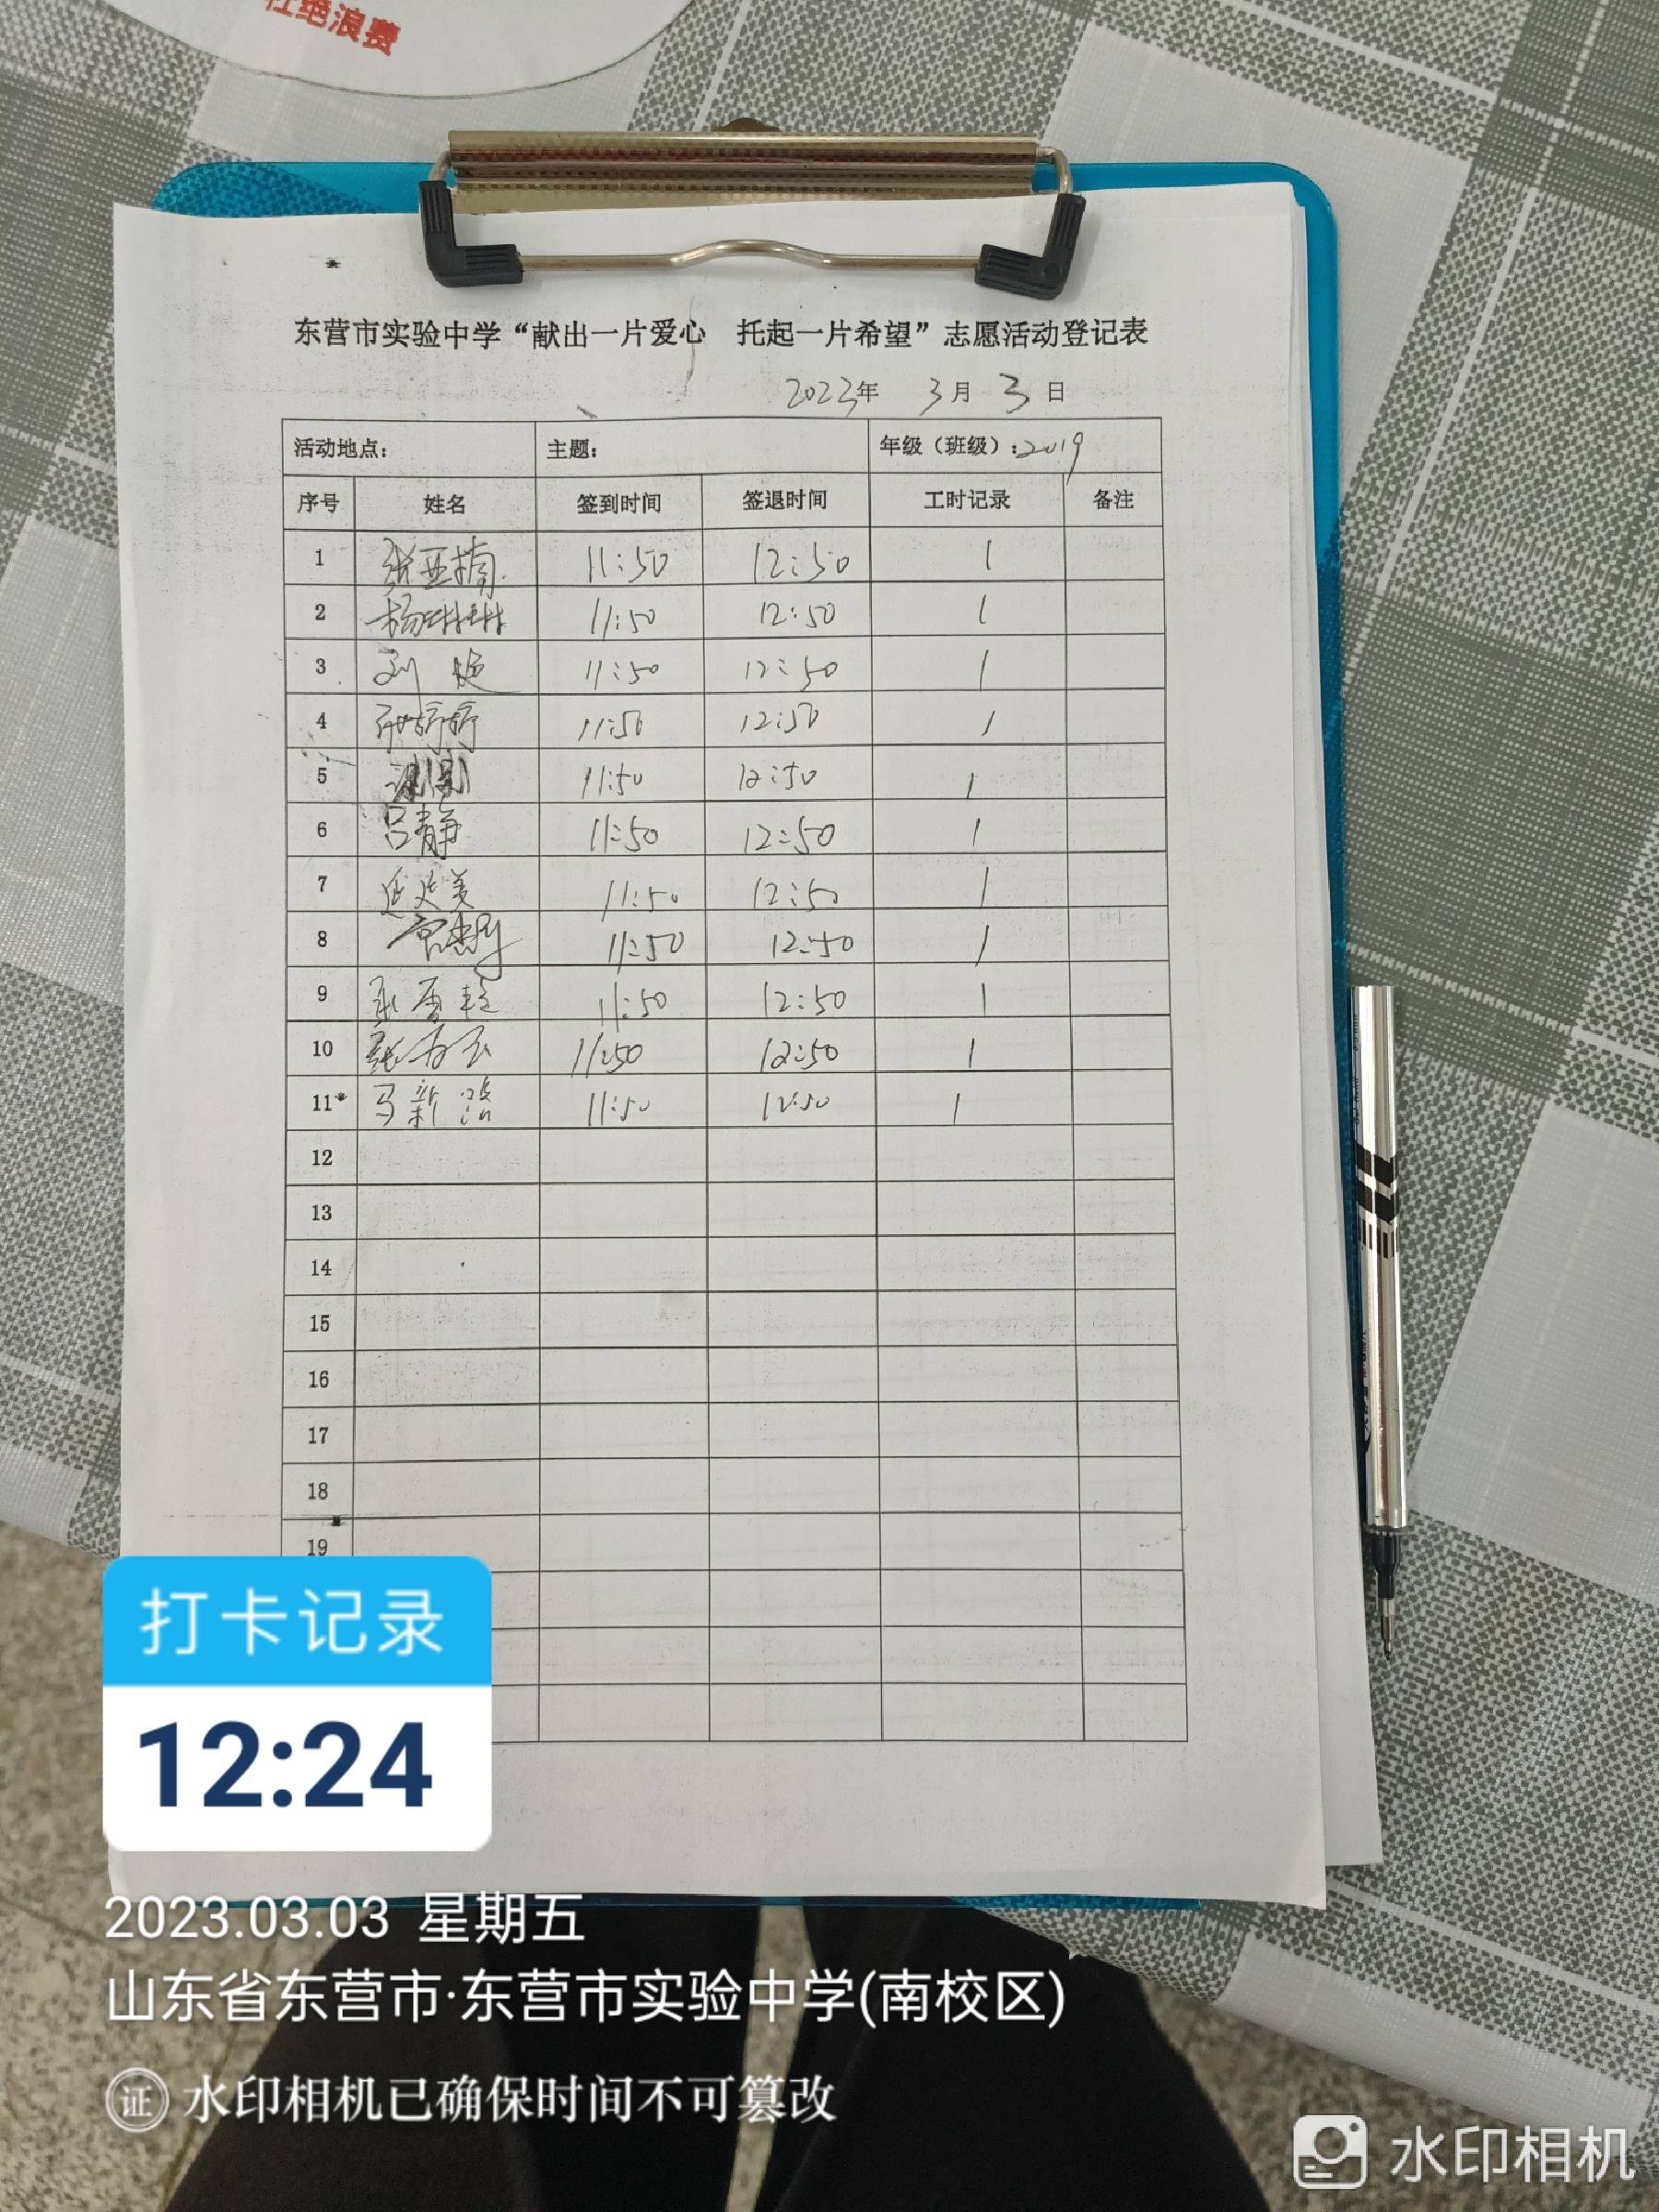 杜绝浪费
东营市实验中学“献出一片爱心 托起一片希望”志愿活动登记表
2023年 3月 3日
活动地点: 主题: 年级（班级）:2019
序号 姓名 签到时间 签退时间 工时记录 备注
1 张亚楠 11:50 12:50 1
2 杨琳琳 11:50 12:50 1
3 刘 11:50 12:50 1
4 婷婷 11:50 12:50 1
5 11:50 12:50 1
6 吕静 11:50 12:50 1
7 美 11:50 12:50 1
8 11:50 12:50 1
9 11:50 12:50 1
10 张 11:50 12:50 1
11 马新 11:50 12:50 1
12
13
14
15
16
17
18
19
打卡记录
12:24
2023.03.03 星期五
山东省东营市·东营市实验中学(南校区)
证 水印相机已确保时间不可篡改
水印相机